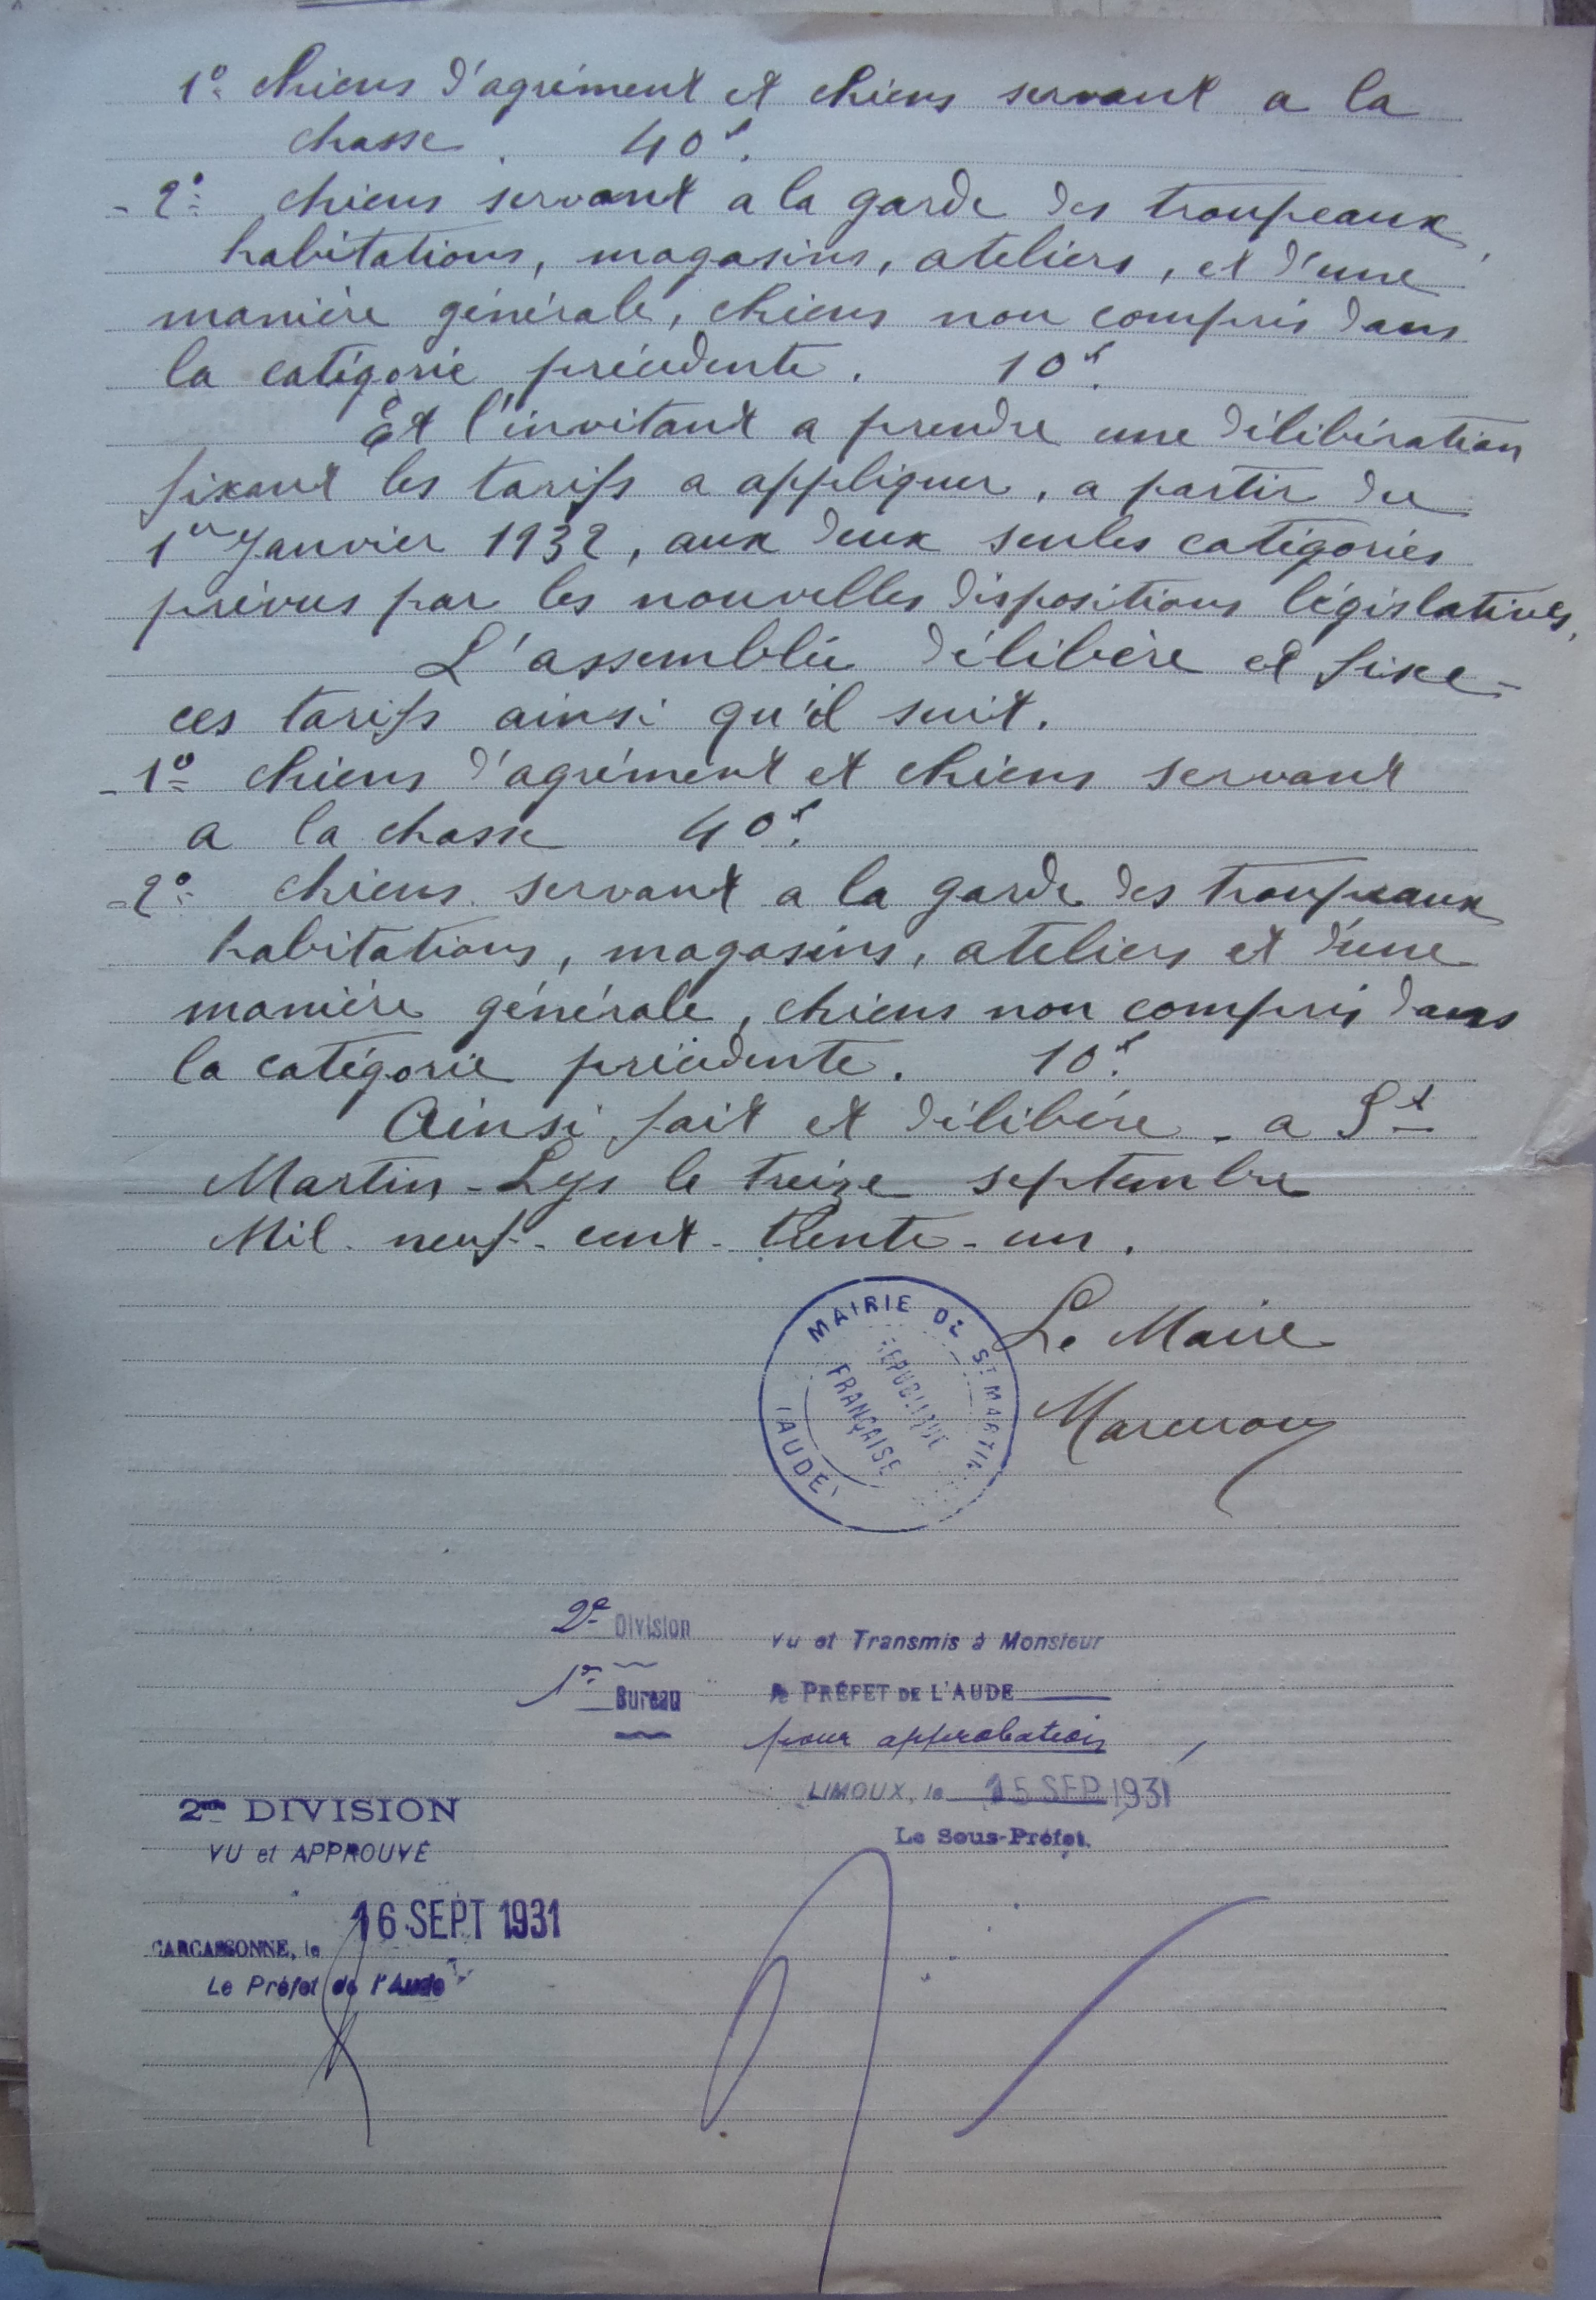 1º chiens d'agrément et chiens servant a la
chasse. 40f.
- 2º chiens servant a la garde des troupeaux,
habitations, magasins, ateliers, et d'une
manière générale, chiens non compris dans
la catégorie précédente. 10f.
Et l'invitant a prendre une délibération
fixant les tarifs a appliquer, a partir du
1er Janvier 1932, aux deux seules catégories
prévus par les nouvelles dispositions législatives,
L'assemblée délibère et fixe
ces tarifs ainsi qu'il suit.
- 1º chiens d'agrément et chiens servant
a la chasse 40f.
- 2º chiens servant a la garde des troupeaux
habitations, magasins, ateliers et d'une
manière générale, chiens non compris dans
la catégorie précédente. 10f.
Ainsi fait et délibéré - a St
Martin-Lys le treize septembre
Mil - neuf - cent - trente - un.
Le Maire
MAIRIE DE ST MARTIN
RÉPUBLIQUE
FRANÇAISE
(AUDE)
2e Division
1er Bureau
Vu et Transmis à Monsieur
le PRÉFET DE L'AUDE
pour approbation
LIMOUX, le 15 SEP 1931
Le Sous-Préfet.
2me DIVISION
VU et APPROUVÉ
16 SEPT 1931
CARCASSONNE, le
Le Préfet de l'Aude